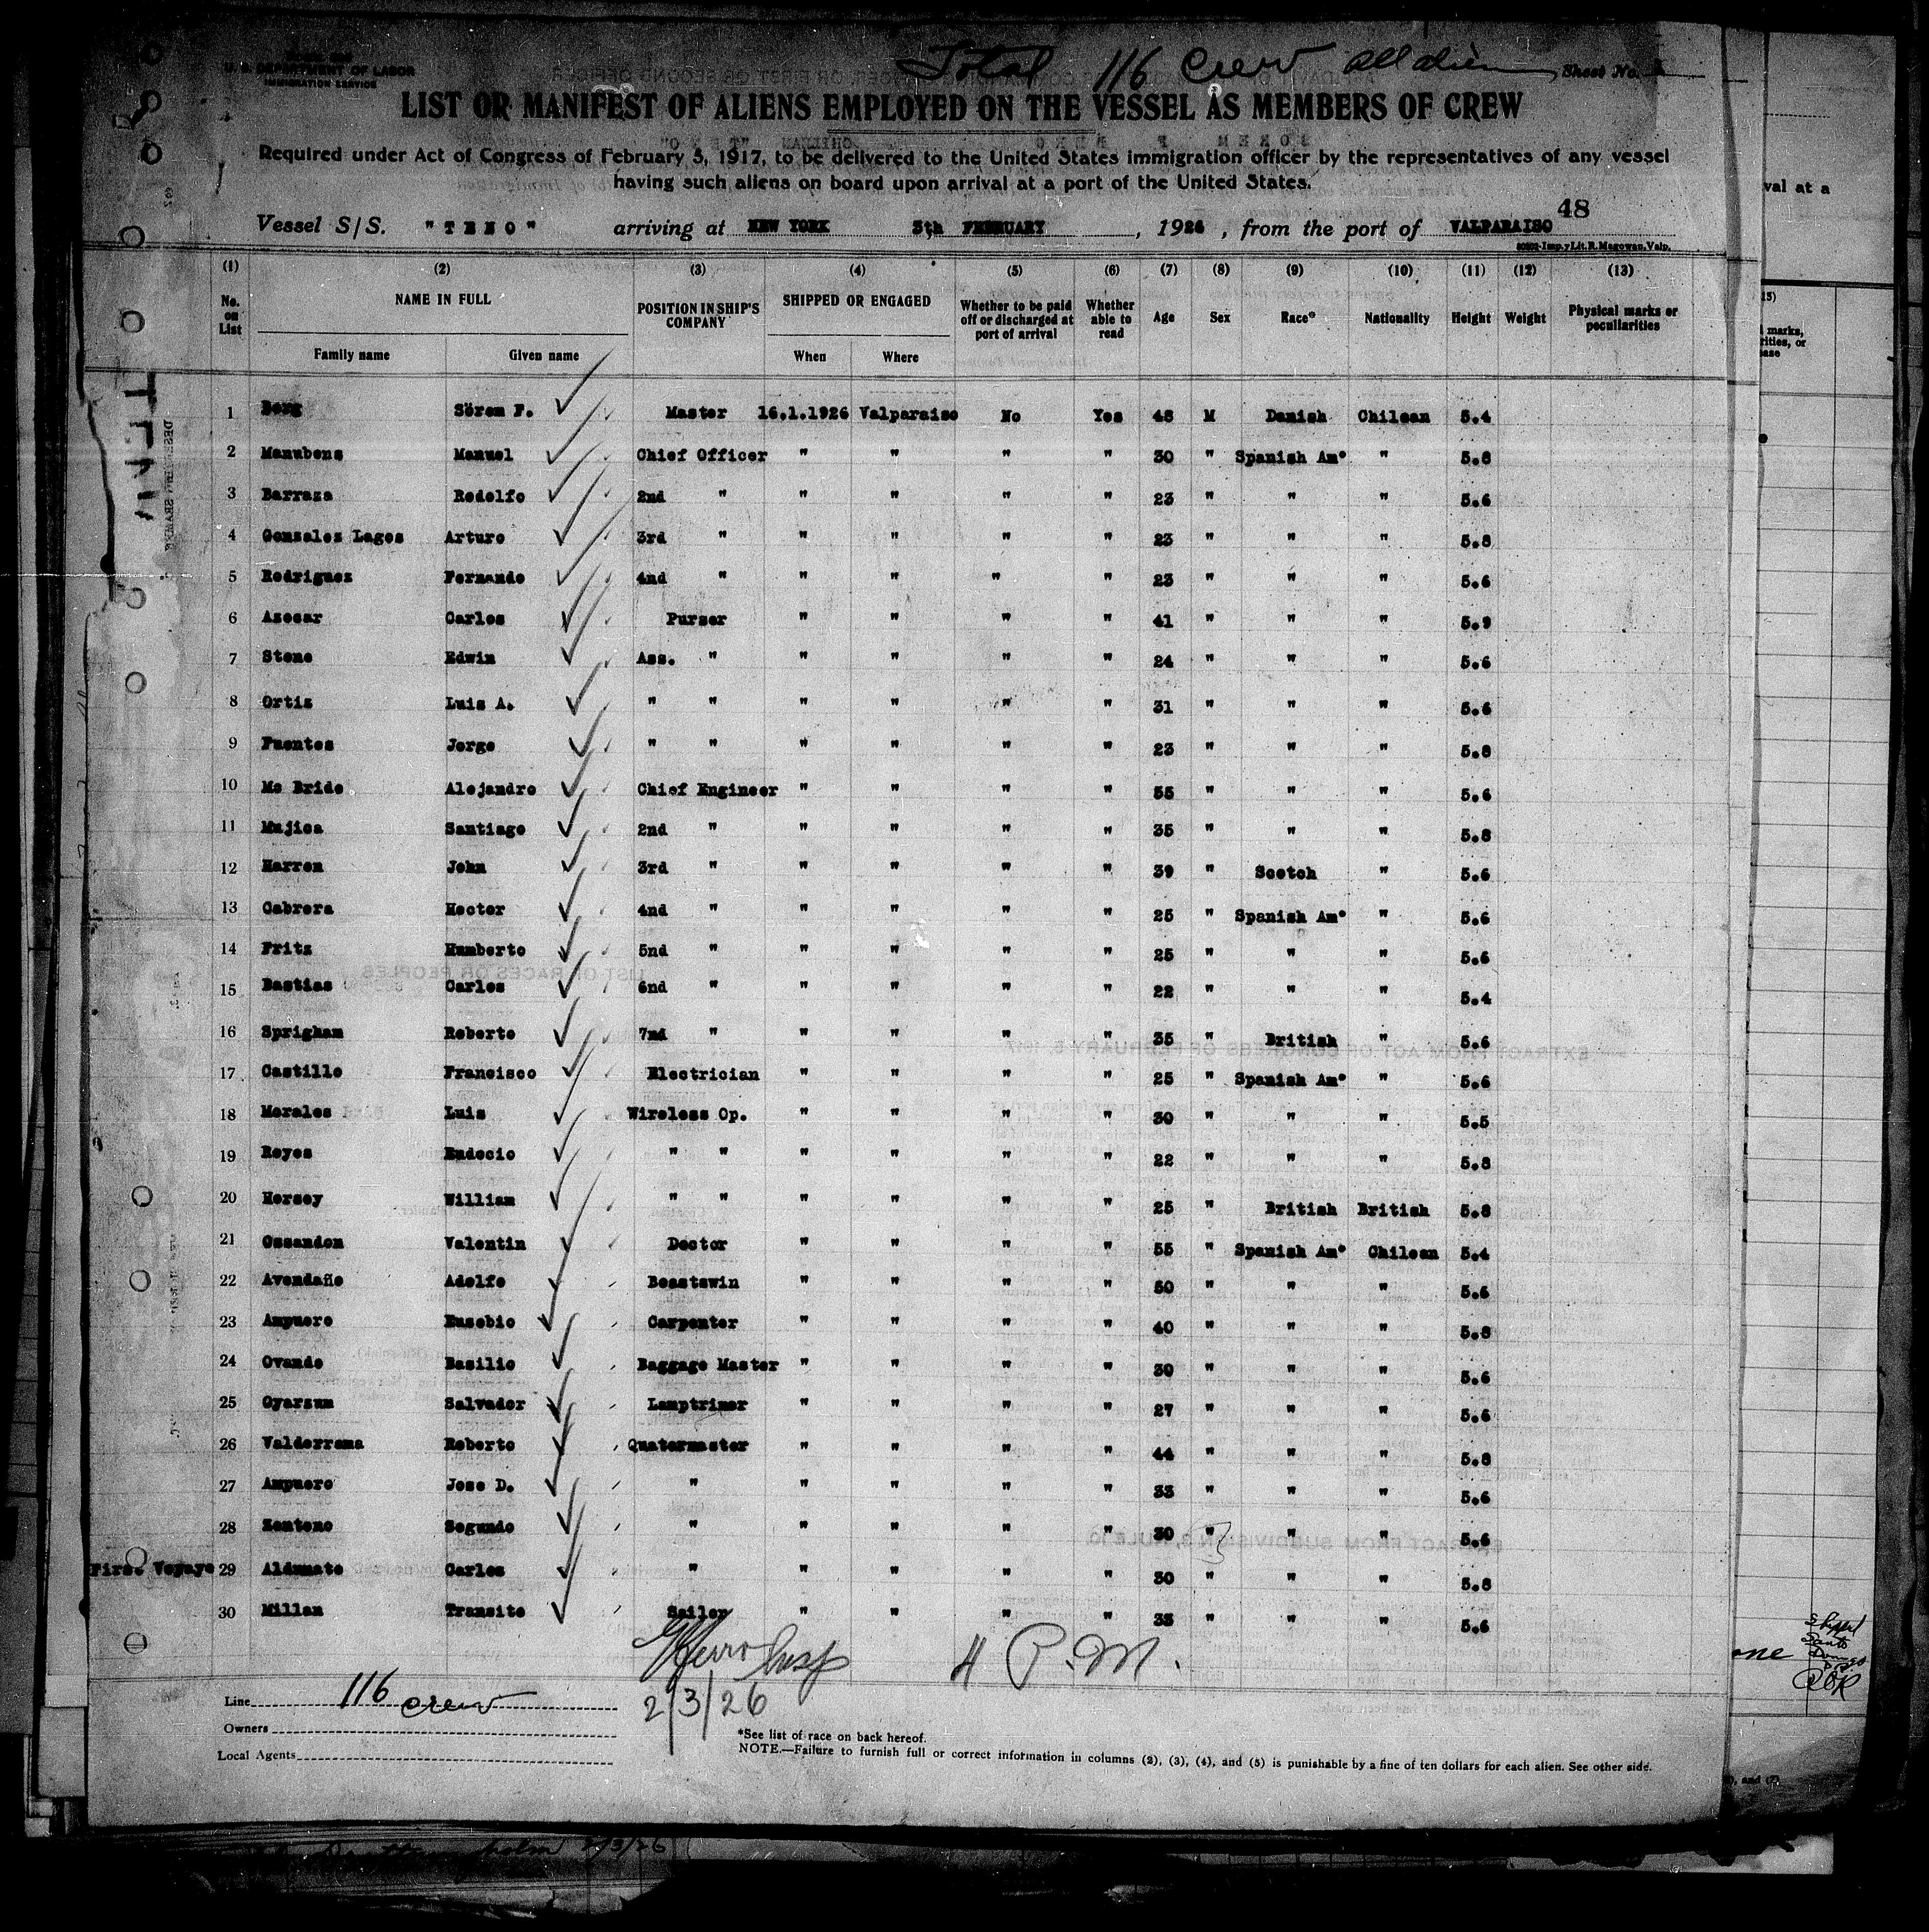 Total 116 Crew all alien
U. S. DEPARTMENT OF LABOR
IMMIGRATION SERVICE
Sheet No.
LIST OR MANIFEST OF ALIENS EMPLOYED ON THE VESSEL AS MEMBERS OF CREW
Required under Act of Congress of February 5, 1917, to be delivered to the United States immigration officer by the representatives of any vessel
having such aliens on board upon arrival at a port of the United States.
48
Vessel S/S. "TENO" arriving at NEW YORK 5th FEBRUARY, 1926, from the port of VALPARAISO
Imp. y Lit. R. Magowan, Valp.
(1) (2) (3) (4) (5) (6) (7) (8) (9) (10) (11) (12) (13)
No. on List NAME IN FULL POSITION IN SHIP'S COMPANY SHIPPED OR ENGAGED Whether to be paid off or discharged at port of arrival Whether able to read Age Sex Race* Nationality Height Weight Physical marks or peculiarities
Family name Given name When Where
1 Borg Sörem F. Master 16.1.1926 Valparaiso No Yes 48 M Danish Chilean 5.4
2 Manubens Manuel Chief Officer " " " " 30 " Spanish Am* " 5.8
3 Barraza Rodolfo 2nd " " " " " 23 " " " 5.6
4 Gonzalez Lagos Arturo 3rd " " " " " 23 " " " 5.8
5 Rodriguez Fernando 4nd " " " " " 23 " " " 5.6
6 Azocar Carlos Purser " " " " 41 " " " 5.9
7 Stone Edwin Ass. " " " " " 24 " " " 5.6
8 Ortiz Luis A. " " " " " " 31 " " " 5.6
9 Fuentes Jorge " " " " " " 23 " " " 5.8
10 Mc Bride Alejandro Chief Engineer " " " " 55 " " " 5.6
11 Mujica Santiago 2nd " " " " " 35 " " " 5.8
12 Harren John 3rd " " " " " 39 " Scotch " 5.6
13 Cabrera Hector 4nd " " " " " 25 " Spanish Am* " 5.6
14 Fritz Humberto 5nd " " " " " 25 " " " 5.6
15 Bastias Carlos 6nd " " " " " 22 " " " 5.4
16 Sprigham Roberto 7nd " " " " " 35 " British " 5.6
17 Castillo Francisco Electrician " " " " 25 " Spanish Am* " 5.6
18 Morales Luis Wireless Op. " " " " 30 " " " 5.5
19 Reyes Eudocio " " " " " " 22 " " " 5.8
20 Hersey William " " " " " " 25 " British British 5.8
21 Ossandon Valentin Doctor " " " " 55 " Spanish Am* Chilean 5.4
22 Avendaño Adolfo Boastswin " " " " 50 " " " 5.6
23 Ampuero Eusebio Carpenter " " " " 40 " " " 5.8
24 Ovando Basilio Baggage Master " " " " 30 " " " 5.6
25 Oyarzun Salvador Lamptrimer " " " " 27 " " " 5.6
26 Valderrama Roberto Quatermaster " " " " 44 " " " 5.8
27 Ampuero Jose D. " " " " " 33 " " " 5.6
28 Zenteno Segundo " " " " " 30 " " " 5.6
First Voyaye 29 Aldunate Carlos " " " " " 30 " " " 5.8
30 Millan Transito Sailor " " " " 33 " " " 5.6
Insp 4 P.M.
Line 116 crew
2/3/26
Owners
Local Agents
*See list of race on back hereof.
NOTE.—Failure to furnish full or correct information in columns (2), (3), (4), and (5) is punishable by a fine of ten dollars for each alien. See other side.
val at a
marks,